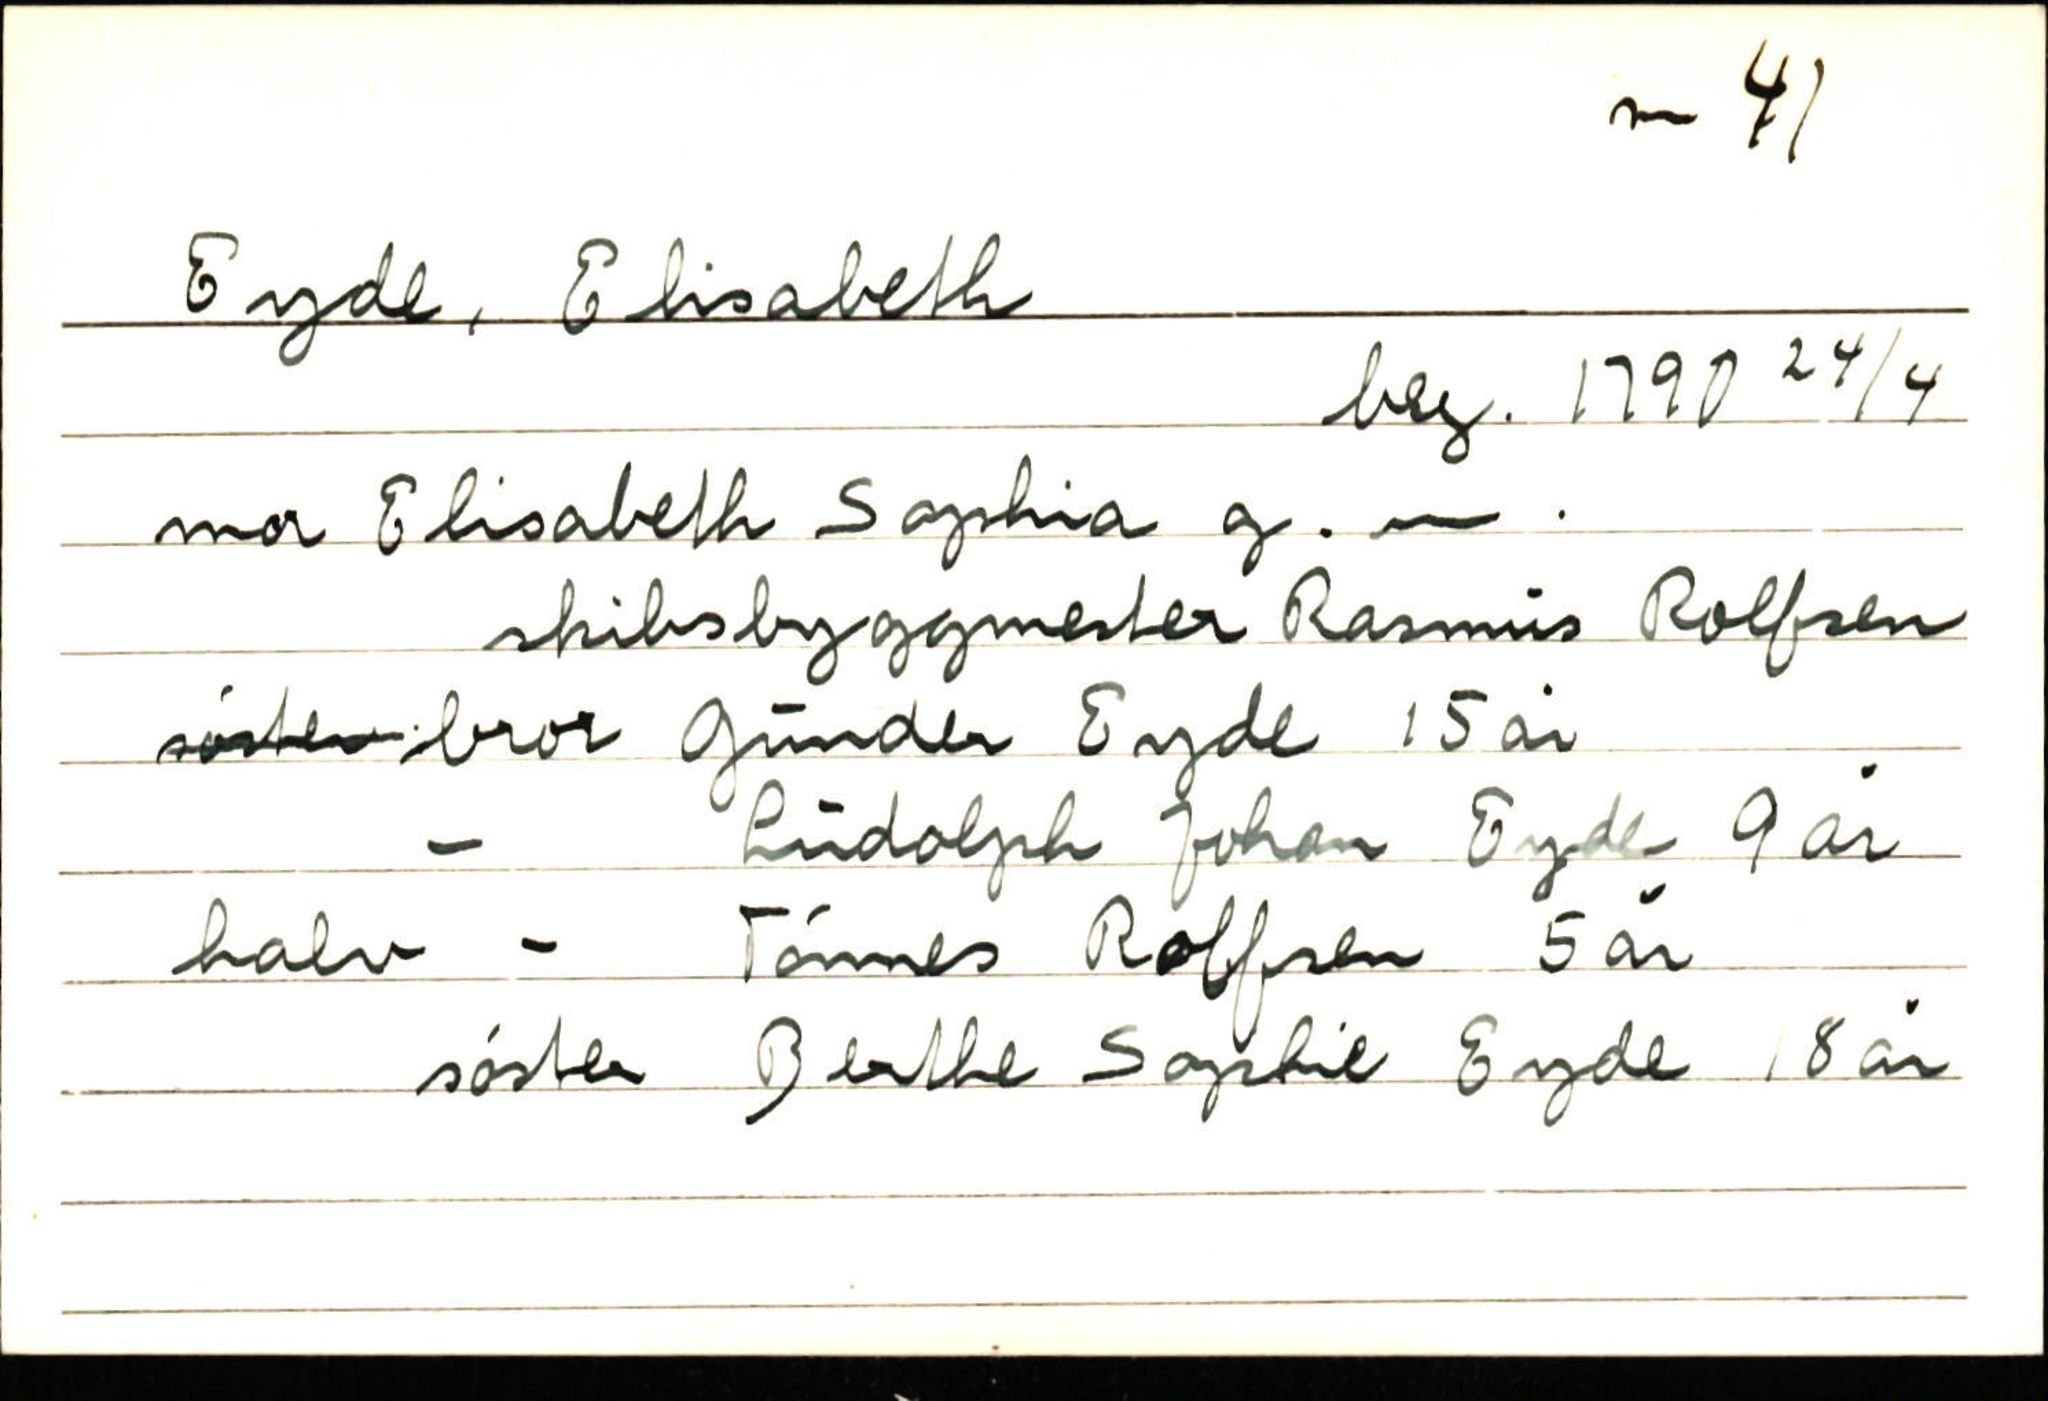 m 41
Eyde, Elisabeth
beg. 1790 24/4
mor Elisabeth Sophia g. m.
skibsbyggmester Rasmus Rolfsen
søster bror Gunder Eyde 15 år
- Ludolph Johan Eyde 9 år
halv - Tønnes Rolfsen 5 år
søster Berthe Sophie Eyde 18 år